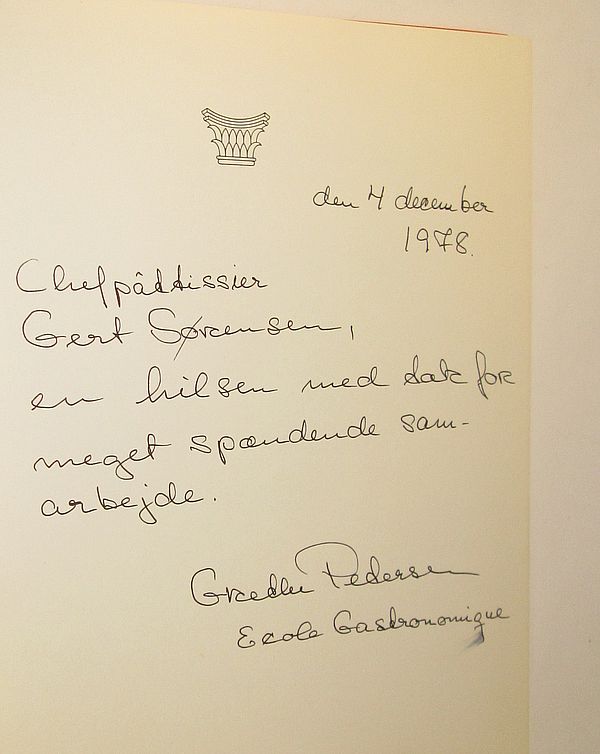 den 4 december
1978.
Chefpâttissier
Gert Sørensen,
en hilsen med tak for
meget spændende sam-
arbejde.
Grethe Pedersen
Ecole Gastronomique